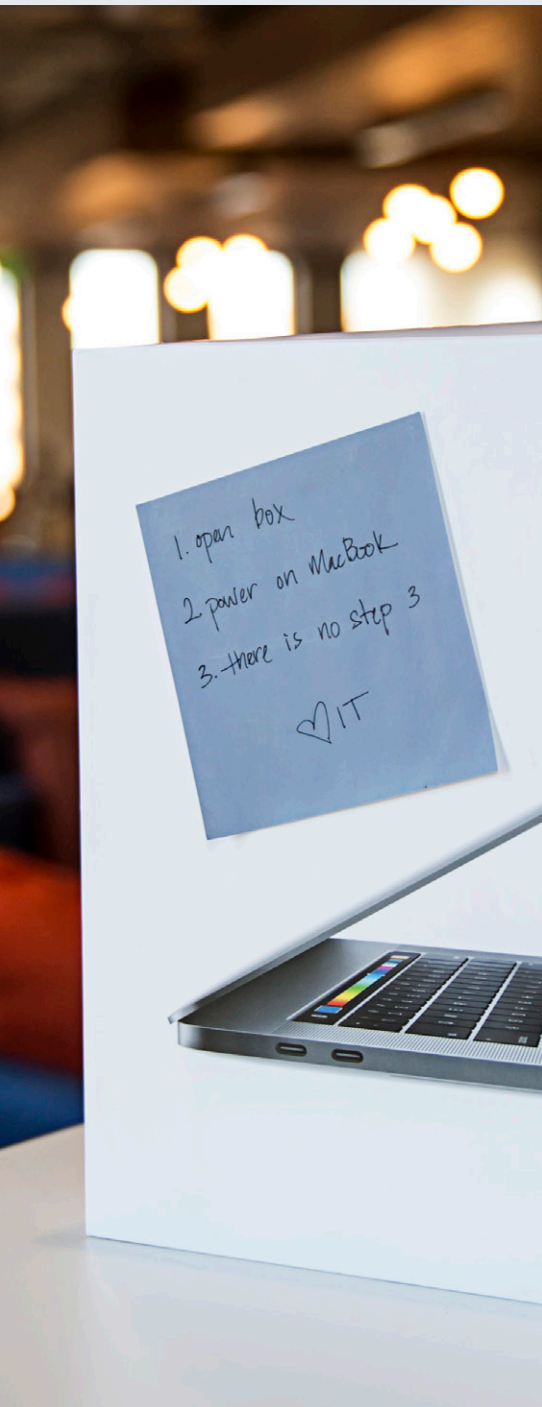 1. open box
2 power on MacBook
3. there is no step 3
♡IT